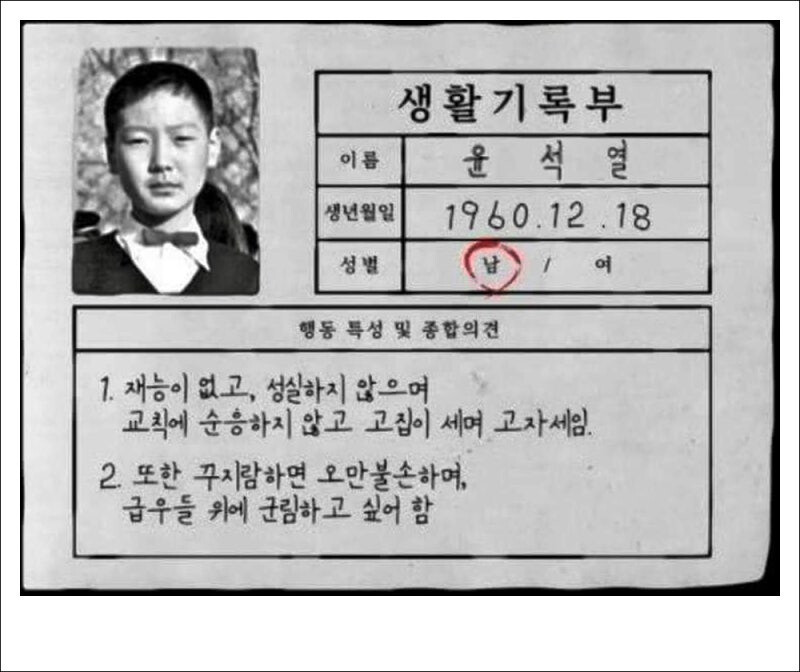 생활기록부
이름 윤 석 열
생년월일 1960.12.18
성별 남 / 여
행동 특성 및 종합의견
1. 재능이 없고, 성실하지 않으며
교칙에 순응하지 않고 고집이 세며 고자세임.
2. 또한 꾸지람하면 오만불손하며,
급우들 위에 군림하고 싶어 함